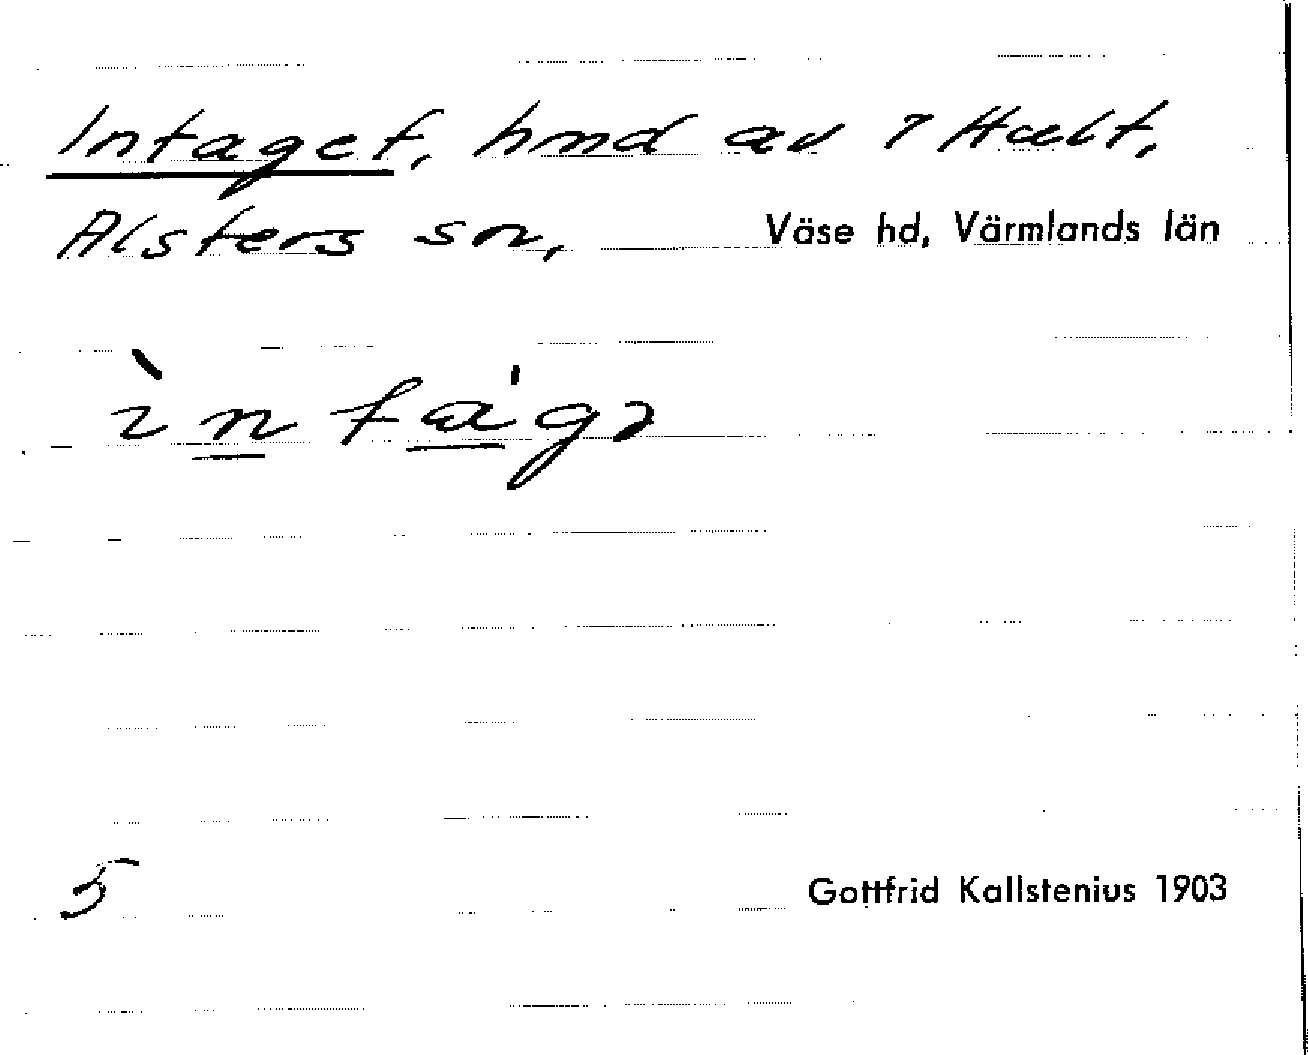 Intaget, hmd av
Alsters sn, Väse hd, Värmlands län
ìntág
5 Gottfrid Kallstenius 1903